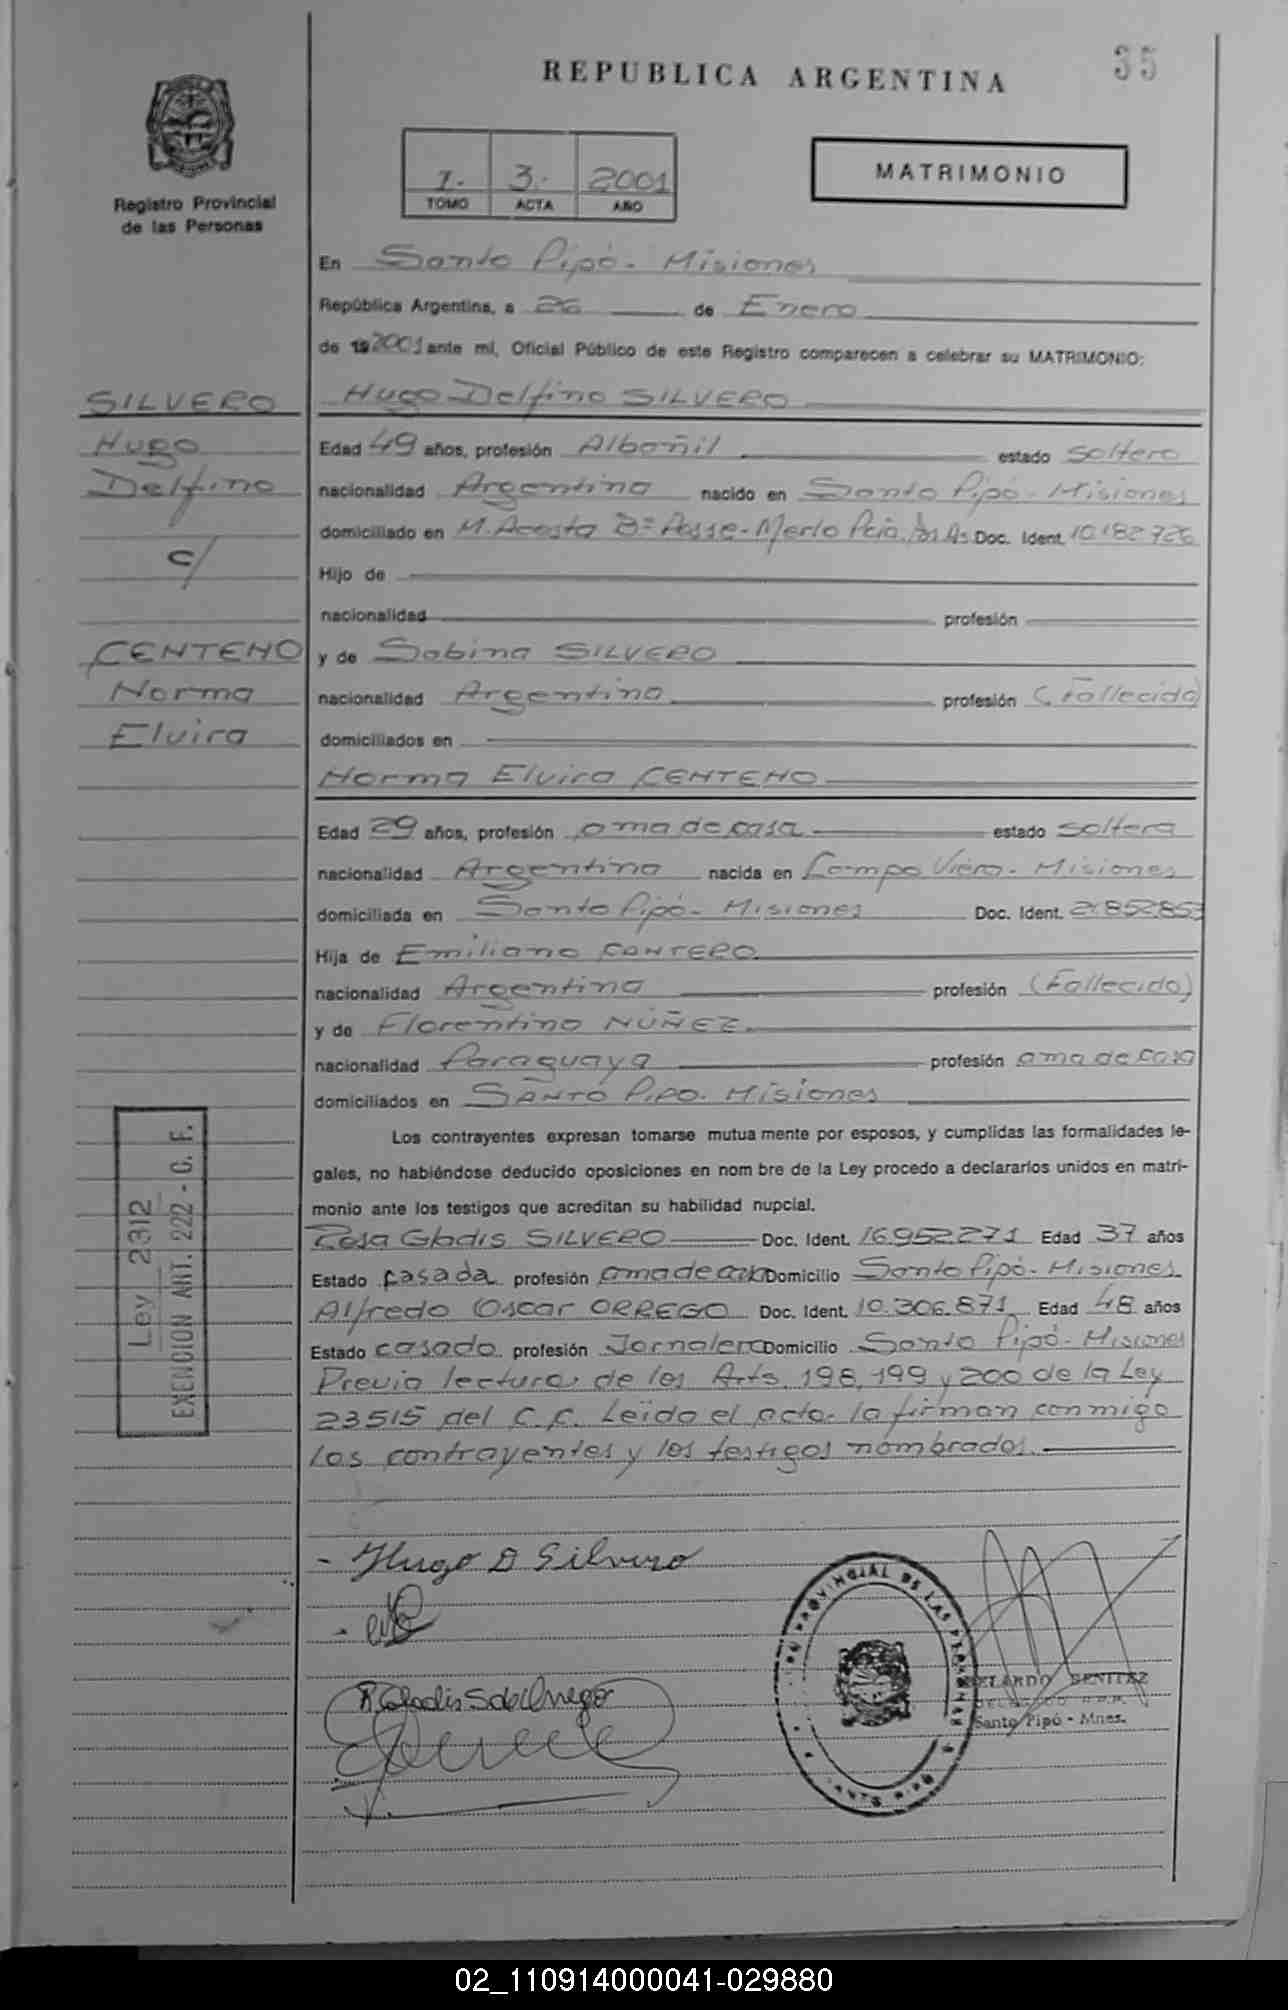 35
REPUBLICA ARGENTINA
Registro Provincial
de las Personas
1. 3. 2001
TOMO ACTA AÑO
MATRIMONIO
En Santo Pipó - Misiones
República Argentina, a 26 de Enero
de 19 2001 ante mí, Oficial Público de este Registro comparecen a celebrar su MATRIMONIO:
SILVERO
Hugo
Delfino
c/
CENTENO
Norma
Elvira
Hugo Delfino SILVERO
Edad 49 años, profesión Albañil estado soltero
nacionalidad Argentina nacido en Santo Pipó - Misiones
domiciliado en M. Acosta Bº Posse - Merlo Pcia. Bs As Doc. Ident. 10.182.726
Hijo de
nacionalidad profesión
y de Sabina SILVERO
nacionalidad Argentina profesión (Fallecida)
domiciliados en
Norma Elvira CENTENO
Edad 29 años, profesión ama de casa estado soltera
nacionalidad Argentina nacida en Campo Viera - Misiones
domiciliada en Santo Pipó - Misiones Doc. Ident.
Hija de Emiliano
nacionalidad Argentina profesión (Fallecido)
y de Florentina NÚÑEZ.
nacionalidad Paraguaya profesión ama de casa
domiciliados en SANTO PIPO - Misiones
Los contrayentes expresan tomarse mutua mente por esposos, y cumplidas las formalidades le-
gales, no habiéndose deducido oposiciones en nom bre de la Ley procedo a declararlos unidos en matri-
monio ante los testigos que acreditan su habilidad nupcial.
Rosa Gladis SILVERO Doc. Ident. 16.952.271 Edad 37 años
Estado casada profesión ama de casa Domicilio Santo Pipó - Misiones
Alfredo Oscar ORREGO Doc. Ident. 10.306.871 Edad 48 años
Estado casado profesión Jornalero Domicilio Santo Pipó - Misiones
Previa lectura de los Arts. 198, 199 y 200 de la Ley
23515 del C.C. Leída el acta, la firman conmigo
los contrayentes y los testigos nombrados.
Ley 2312
EXENCION ART. 222 - C. F.
- Hugo D Silvero
R Gladis S de Orrego
PROVINCIAL DE LAS PERSONAS
SANTO PIPO
BENITEZ
DELEGADO R.P.P.
Santo Pipó - Mnes.
02_110914000041-029880